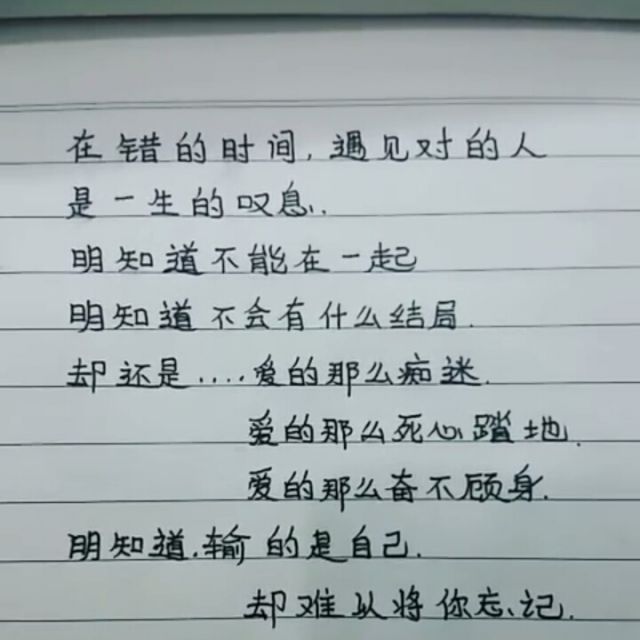 在错的时间,遇见对的人
是一生的叹息.
明知道不能在一起
明知道不会有什么结局.
却还是....爱的那么痴迷.
爱的那么死心踏地.
爱的那么奋不顾身.
明知道.输的是自己.
却难以将你忘记.